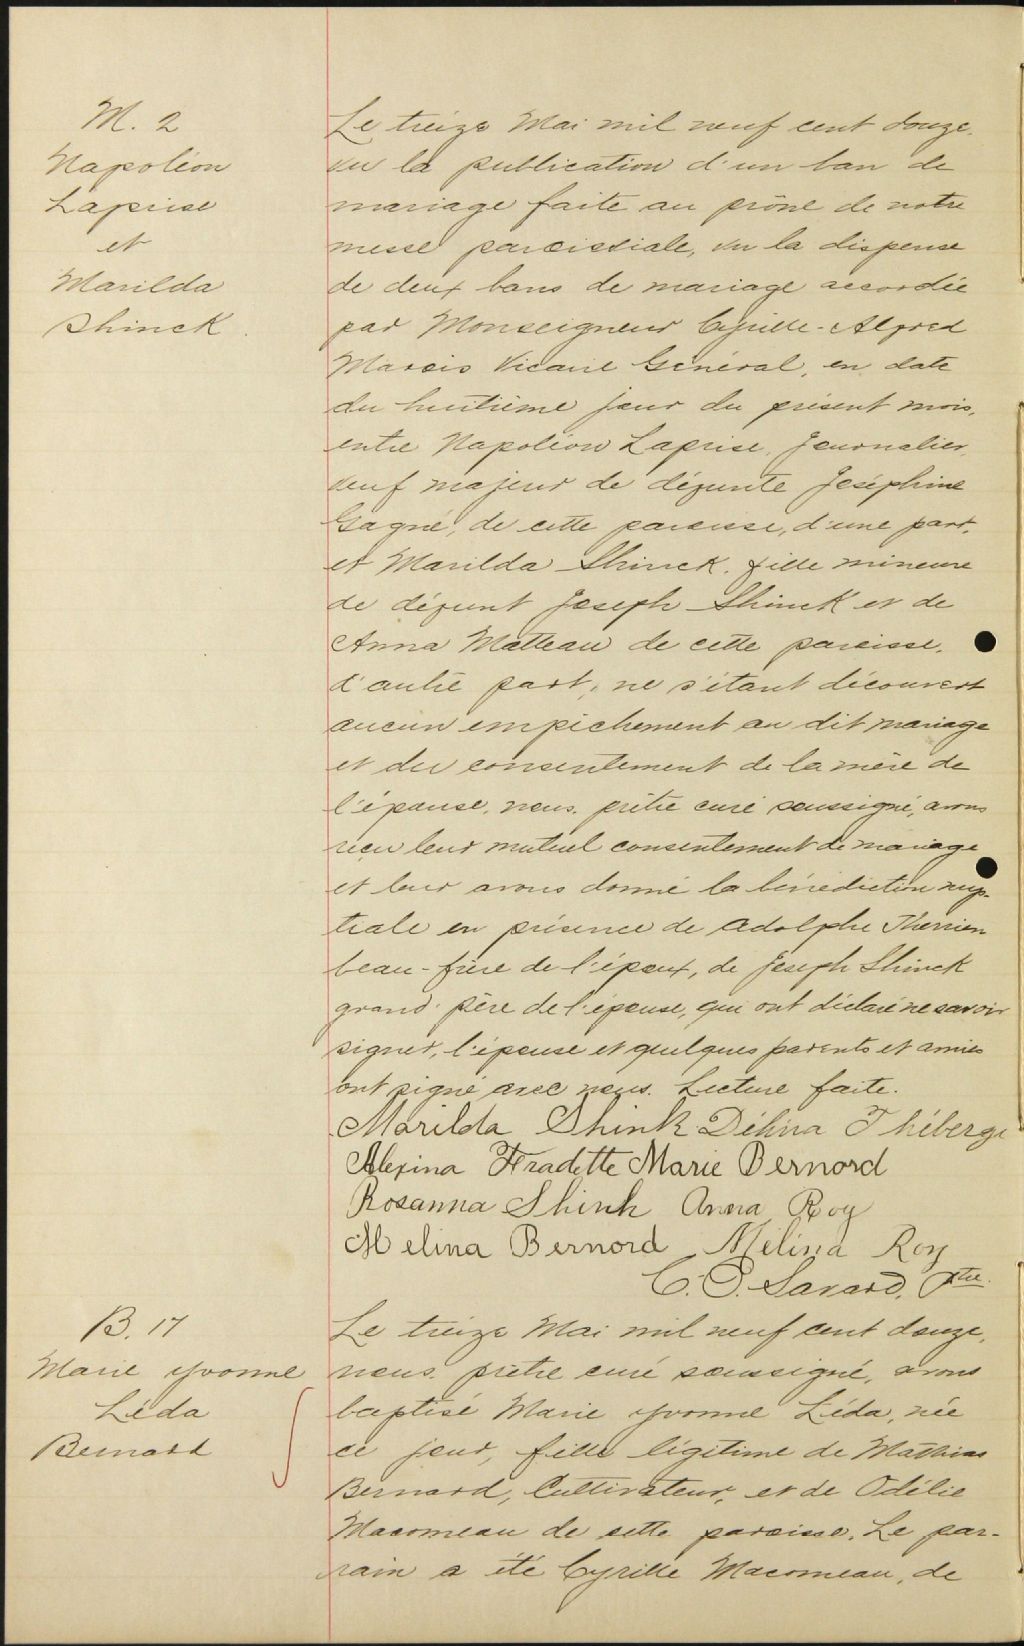 M. 2
Napoléon
Laprise
et
Marilda
Shinck.
Le treize Mai mil neuf cent douze,
vu la publication d'un ban de
mariage faite au prône de notre
messe paroissiale, vu la dispense
de deux bans de mariage accordée
par Monseigneur Cyrille-Alfred
Marois Vicaire Général, en date
du huitième jour du présent mois,
entre Napoléon Laprise, Journalier,
veuf majeur de défunte Joséphine
Gagné, de cette paroisse, d'une part,
et Marilda Shinck, fille mineure
de défunt Joseph Shinck et de
Anna Matteau de cette paroisse,
d'autre part, ne s'étant découvert
aucun empêchement au dit mariage
et du consentement de la mère de
l'épouse, nous, prêtre curé soussigné, avons
reçu leur mutuel consentement de mariage
et leur avons donné la bénédiction nup-
tiale en présence de Adolphe Therrien
beau-frère de l'époux, de Joseph Shinck
grand-père de l'épouse, qui ont déclaré ne savoir
signer, l'épouse et quelques parents et amies
ont signé avec nous. Lecture faite.
Marilda Shink Délina Théberge
Alexina Fradette Marie Bernard
Rosanna Shink Anna Roy
Melina Bernard Mélina Roy
C. P. Savard, Ptre.
B. 17
Marie Yvonne
Léda
Bernard
Le treize Mai mil neuf cent douze,
nous, prêtre curé soussigné, avons
baptisé Marie Yvonne Léda, née
ce jour, fille légitime de Mathias
Bernard, Cultivateur, et de Odélie
Macomeau de cette paroisse. Le par-
rain a été Cyrille Macomeau, de